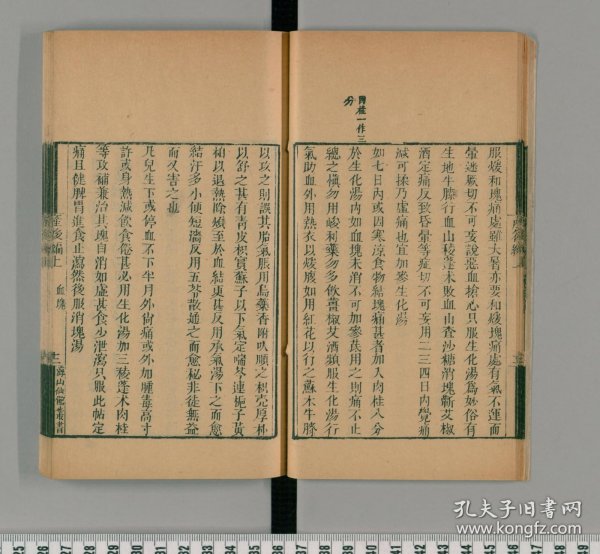 肉桂一作三
分
服煖和塊痛處雖大暑亦要和煖塊痛處有氣不運而
暈迷厥切不可妄說惡血搶心只服生化湯為妙俗有
生地牛膝行血山稜蓬术敗血山查沙糖消塊蘄艾椒
酒定痛反致昏暈等症切不可妄用二三四日內覺痛
減可揉乃虛痛也宜加參生化湯
如七日內或因寒涼食物結塊痛甚者加入肉桂八分
於生化湯內如血塊未消不可加參茋用之則痛不止
總之慎勿用峻利藥勿多飲薑椒艾酒頻服生化湯行
氣助血外用熱衣以煖腹如用紅花以行之蘇木牛膝
以攻之則誤其胎氣脹用烏藥香附以順之枳壳厚朴
以舒之甚有青皮枳實蘇子以下氣定喘芩連梔子黃
柏以退熱除煩至於血結更甚反用承氣湯下之而愈
結汗多小便短濇反用五苓散通之而愈秘非徒無益
而又害之也
凡兒生下或停血不下半月外尙痛或外加腫毒高寸
許或身熱減飲食倦甚必用生化湯加三稜蓬术肉桂
等攻補兼治其塊自消如虛甚食少泄瀉只服此帖定
痛且健脾胃進食止瀉然後服消塊湯
產後編上
血塊
孔夫子旧书网
www.kongfz.com
25 26 27 28 29 30 31 32 33 34 35 36 37 38 39 40 41 42 43 44 45 46 47 48 49